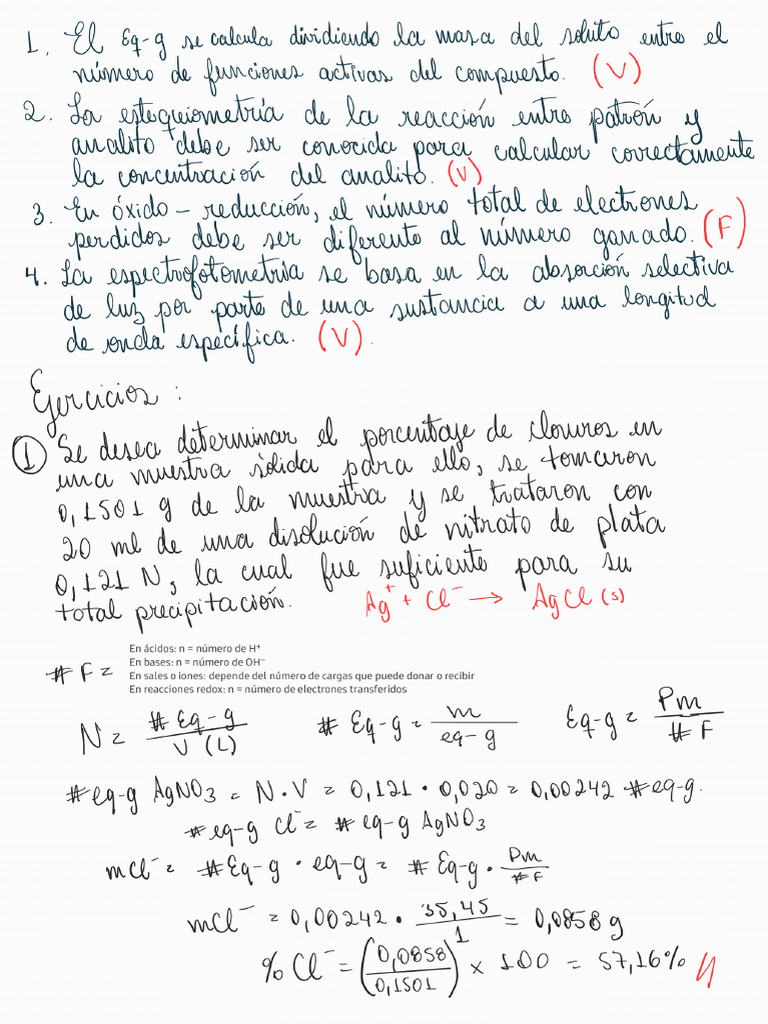 1. El Eq-g se calcula dividiendo la masa del soluto entre el
número de funciones activas del compuesto. (V)
2. La estequiometría de la reacción entre patrón y
analito debe ser conocida para calcular correctamente
la concentración del analito. (V)
3. En óxido - reducción, el número total de electrones
perdidos debe ser diferente al número ganado. (F)
4. La espectrofotometría se basa en la absorción selectiva
de luz por parte de una sustancia a una longitud
de onda específica. (V).
Ejercicios :
① Se desea determinar el porcentaje de cloruros en
una muestra sólida para ello, se tomaron
0,1501 g de la muestra y se trataron con
20 ml de una disolución de nitrato de plata
0,121 N, la cual fue suficiente para su
total precipitación. Ag⁺ + Cl⁻ → AgCl (s)
En ácidos: n = número de H⁺
En bases: n = número de OH⁻
# F = En sales o iones: depende del número de cargas que puede donar o recibir
En reacciones redox: n = número de electrones transferidos
N = # Eq-g / V (L) # Eq-g = m / eq-g Eq-g = Pm / # F
#eq-g AgNO₃ = N · V = 0,121 · 0,020 = 0,00242 #eq-g.
#eq-g Cl⁻ = # eq-g AgNO₃
mCl⁻ = #Eq-g · eq-g = # Eq-g · Pm / #F
mCl⁻ = 0,00242 · 35,45 / 1 = 0,0858 g
% Cl⁻ = (0,0858 / 0,1501) × 100 = 57,16%